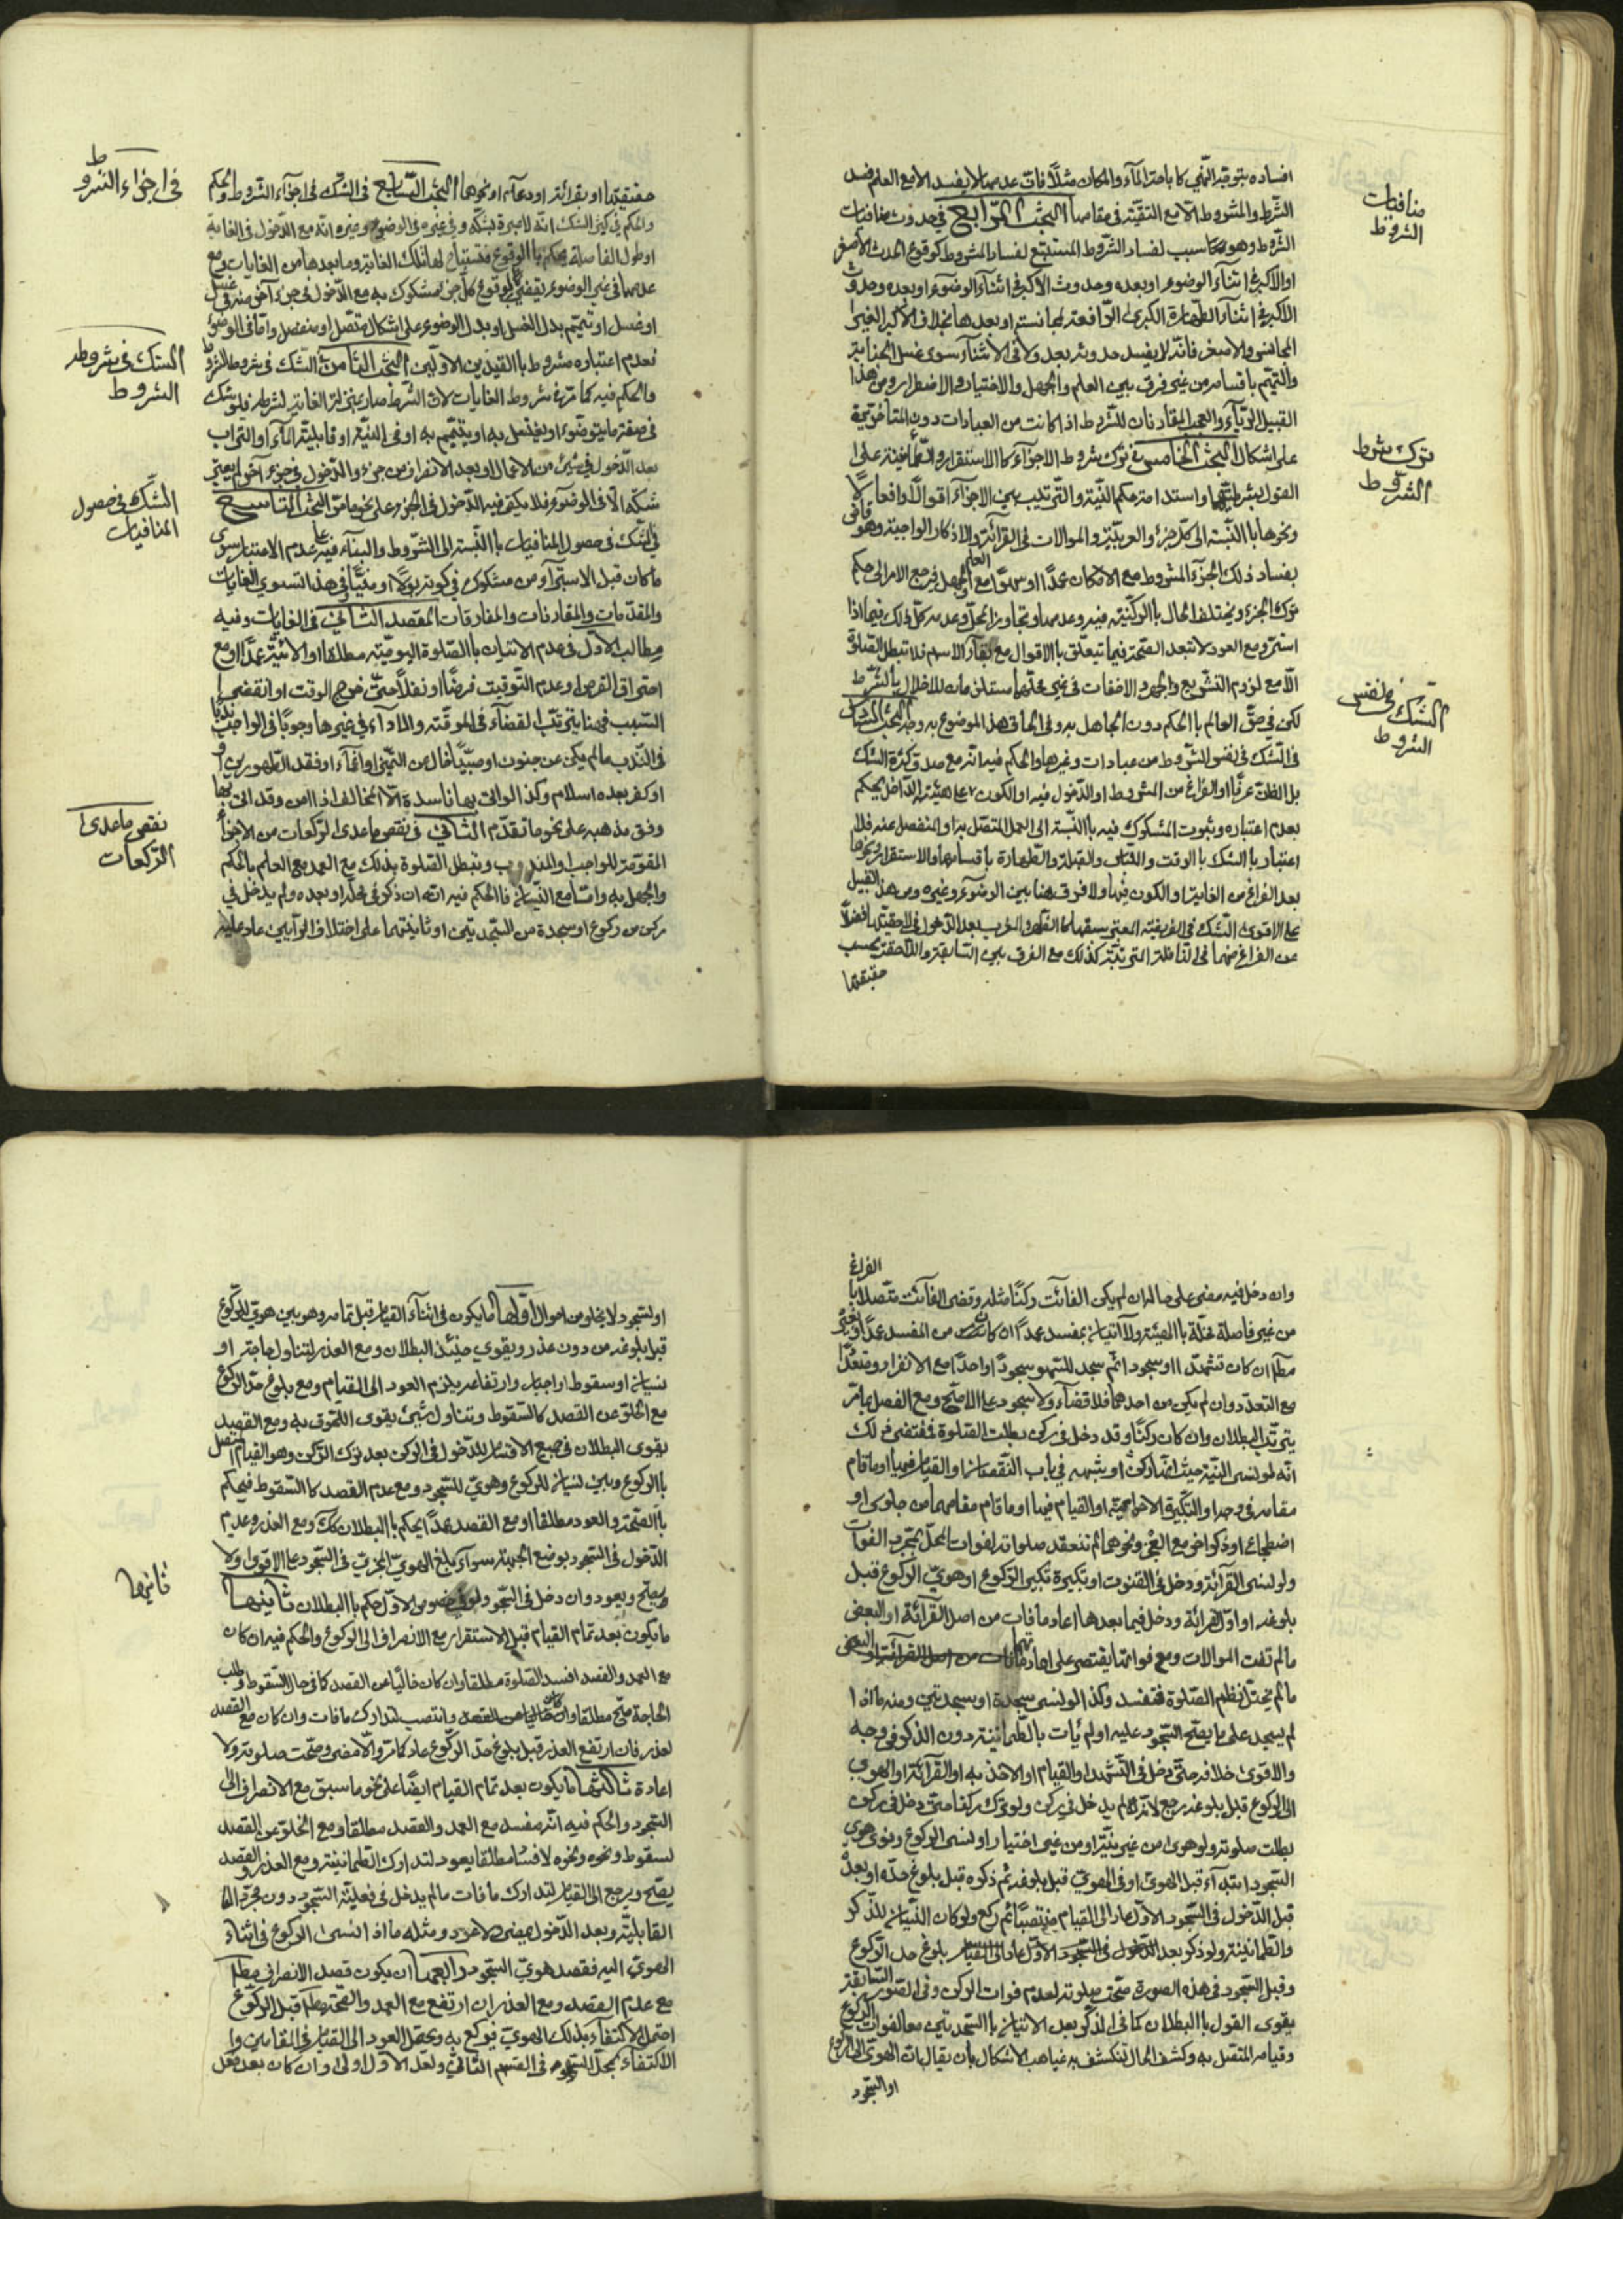 افساده بتوجه النهي كاباحة المآء والمكان مثلاً فات عدمهما لا يفسد الا مع العلم فسد
الشرط والمشروط الا مع التقية في مقامها البحث الرابع في حدوث منافيات
الشروط وهو سبب لفساد الشروط المستتبع لفساد المشروط كوقوع الحدث الاصغر
او الاكبر في اثناء الوضوء او بعده وحدوث الاكبر في اثنآء الوضوء او بعده وحدوث
الاكبر في اثنآء الطهارة الكبرى الرافعة لمجانسه او بعدها بخلاف الاكبر الغير
المجانس والاصغر فانه لا يفسد حدوثه بعد ولا في الاثنآء سوى غسل الجنابة
والتيمم باقسامه من غير فرق بين العلم والجهل والاختيار والاضطرار ومن هذا
القبيل الريآء والعجب المقارنان للشروط اذا كانت من العبادات دون المتأخر
على اشكال البحث الخامس في ترك شروط الاجزآء كالاستقرار والطمأنينة على
القول بشرطيتها واستدامة حكم النية والترتيب بين الاجزآء اقوالاً وافعالاً
ونحوها باالنسبة الى كل جزء والعربية والموالات في القرآئة والاذكار الواجبة وهو قاض
بفساد ذلك الجزء المشروط مع الامكان عمدًا او سهوًا مع العلم والجهل فيرجع الامر الى حكم
ترك الجزء ويختلف الحال باالركنية فيه وعدمها وتجاوز المحل وعدمه كل ذلك فيما اذا
استمر ومع العود لا تبعد الصحة فيما تتعلق باالاقوال مع بقآء الاسم فلا تبطل الصلوة
الا مع لزوم التشريع والجهر والاخفات في غير محلهما مستلزمان للاخلال باالشرط
لكن في حق العالم باالحكم دون الجاهل به وفي الحاق هذا الموضوع به وجه البحث السادس
في الشك في نفس الشروط من عبادات وغيرها والحكم فيه انه مع صدق كثرة الشك
بل الظن عرفًا او الفراغ من المشروط او الدخول فيه او الكون على هيئة الداخل يحكم
بعدم اعتباره وثبوت المشكوك فيه باالنسبة الى العمل المتصل به او المنفصل عنه فلا
اعتبار باالشك باالوقت والقبلة والطهارة باقسامها والاستقرار ونحوها
بعد الفراغ من الغاية او الكون فيها ولا فرق هنا بين الوضوء وغيره ومن هذا القبيل
على الاقوى الشك في الفريضة المعتبر سبقها كالظهر والمغرب بعد الدخول في لاحقيتها فضلاً
من الفراغ منهما في النافلة المترتبة كذلك مع الفرق بين السابقة واللاحقة بحسب
حقيقتها
منافيات
الشروط
ترك شروط
الشروط
الشك في نفس
الشروط
حقيقتها او بقرائة او دعآء او نحوها البحث السابع في الشك في اجزآء الشروط والحكم
والحكم في كثير الشك انه لا عبرة بشكه وفي غيره في الوضوء وغيره انه مع الدخول في الغاية
او طول الفاصلة يحكم باالوقوع فتستباح لها تلك الغاية وما بعدها من الغايات ومع
عدمهما في غير الوضوء يقضي بوقوع كل جزء مشكوك به مع الدخول في جزء آخر منه في غسل
او غسل او تيمم بدل الغسل او بدل الوضوء على اشكال متصل او منفصل واما في الوضوء
فعدم اعتباره مشروط باالقيدين الاولين البحث الثامن الشك في شروط الشروط
والحكم فيه كما مر في شروط الغايات لان الشرط صار بمنزلة الغاية لشرطه فلو شك
في صفة ما يتوضوء او يغتسل به او يتيمم به او في النية او قابلية المآء او التراب
بعد الدخول في شيء من الاعمال او بعد الانفراغ من جزء والدخول في جزء آخر لم يعتبر
شكه الا في الوضوء فلا يكفي فيه الدخول في الجزء على نحو ما مر البحث التاسع
في الشك في حصول المنافيات باالنسبة الى الشروط والبنآء فيه على عدم الاعتبار سوى
ما كان قبل الاستبرآء من مشكوك في كونه بولاً او منيًا وفي هذا تستوي الغايات
والمقدمات والمقارنات والمفارقات المقصد الثاني في الغايات وفيه
مطالب الاول في عدم الاتيان باالصلوة اليومية مطلقا او الاتية عمدًا او مع
احتراق الفرص او عدم التوقيت فرضًا او نفلاً حتى خرج الوقت او انقضى
السبب فهنا يترتب القضآء في الموقته والادآء في غيرها وجوبًا في الواجب وندبًا
في الندب مالم يكن عن جنون او صبىً خال من التميز او اغمآء او فقد الطهورين او
او كفر بعده اسلام وكذا لو اتى بها فاسدة الا المخالف اذا امن وقد اتى بها
وفق مذهبه على نحو ما تقدم الثاني في نقص ما عدى الركعات من الاجزآء
المقومة للواجب او المندوب وتبطل الصلوة بذلك مع العمد مع العلم باالحكم
والجهل به واما مع النسيان فاالحكم فيه انه ان ذكر في محله او بعده ولم يدخل في
ركن من ركوع او سجدة من السجدتين او ثانيتهما على اختلاف الرآيين عاد عليه
في اجزاء الشروط
الشك في شروط
الشروط
الشك في حصول
المنافيات
نقص ما عدى
الركعات
الفراغ
وان دخل فيه مضى على حاله ان لم يكن الفائت ركنًا مثله وقضى الفآئت متصلا با
من غير فاصلة مخلة باالهيئة ولا اتيان بمفسد عمدًا ان كان من المفسد عمدًا او بغير
مطلقا ان كان تشهدا او سجودا ثم سجد للسهو سجودًا واحدًا مع الانفراد ومتعددًا
مع التعدد وان لم يكن من احدهما فلا قضآء ولا سجود على الاصح ومع الفصل بما مر
يترتب البطلان وان كان ركنًا وقد دخل في ركن بطلت الصلوة فمقتضى ذلك
انه لو نسى النية حيث انها ركن او شبهه في باب النقصان او القيام فيها او ما قام
مقامه في وجه او التكبيرة الاحرامية او القيام فيها او ما قام مقامهما من جلوس او
اضطجاع او ذكر اخر مع العجز ونحوها لم تنعقد صلواته لفوات المحل بمجرد الفوات
ولو نسى القرآئة ودخل في القنوت او تكبيرة تكبير الركوع او هوي الركوع قبل
بلوغه او اول القرائة ودخل فيما بعدها اعاد ما فات من اصل القرآئة او البعض
مالم تفت الموالات ومع فواتها يقتصر على اعادة
مالم يختل نظم الصلوة فتفسد وكذا لو نسى سجدة او سجدتين ومنه ما اذا
لم يسجد على ما يصح السجود عليه او لم يأت باالطمانينة دون الذكر في وجه
والاقوى خلافه متى دخل في التشهد او القيام او الاخذ به او القرآئة او الهوي
الى الركوع قبل بلوغه رجع لانه لم يدخل في ركن ولو ترك ركنا متى دخل في ركن
بطلت صلوته ولو هوى من غير نية او من غير اختيار او نسى الركوع ونوى هوي
السجود ابتدآء قبل الهوى او في الهوي قبل بلوغه ثم ذكره قبل بلوغ حده او بعده
قبل الدخول في السجود الاول عاد الى القيام منتصبًا ثم ركع ولو كان النسيان للذكر
والطمانينة ولو ذكر بعد بلوغ حد الركوع
وقبل السجود في هذه الصورة صحت صلوته لعدم فوات الركن وفي الصور السابقة
يقوى القول باالبطلان كما في الذكر بعد الاتيان باالسجدتين معا لفوات الركوع
وقيامه المتصل به وكشف الحال لتنكشف به غياهب الاشكال بان يقال ان الهوي الى الركوع
او السجود
او السجود لا يخلو من احوال اولها ما يكون في اثنآء القيام قبل تمامه وهو بين هوي للركوع
قبل بلوغه من دون عذر ويقوي حينئذ البطلان ومع العذر لتناول حاجة او
نسيان او سقوط او اجبار وارتفاعه يلزم العود الى القيام ومع بلوغ حد الركوع
مع الخلو عن القصد كالسقوط وتناول شيء يقوى اللحوق به ومع القصد
يقوى البطلان في جميع الاقسام للدخول في الركن بعد ترك الركن وهو القيام المتصل
باالركوع وبين نسيان للركوع وهوي للسجود ومع عدم القصد كاالسقوط فيحكم
باالصحة والعود مطلقا او مع القصد عمدًا يحكم باالبطلان كك ومع العذر وعدم
الدخول في السجود بوضع الجبهة سوآء بلغ الهوي المجزي في السجود على الاقوى اولا
يصح ويعود وان دخل في السجود ولو في خصوص الاول حكم باالبطلان ثانيها
ما يكون بعد تمام القيام قبل الاستقرار مع الانصراف الى الركوع والحكم فيه ان كان
مع العمد والقصد افسد الصلوة مطلقا وان كان خاليًا من القصد كما في حال السقوط وطلب
الحاجة صح مطلقا وانتصب لتدارك ما فات وان كان مع القصد
لعذر فان ارتفع العذر قبل بلوغ حد الركوع عاد كما مر والا مضى وصحت صلوته ولا
اعادة ثالثها ما يكون بعد تمام القيام ايضًا على نحو ما سبق مع الانصراف الى
السجود والحكم فيه انه مفسد مع العمد والقصد مطلقا ومع الخلو عن القصد
لسقوط ونحوه ونحوه لا فساد مطلقا يعود لتدارك الطمانينة ومع العذر والقصد
يصح ويرجع الى القيام لتدارك ما فات مالم يدخل في فعلية السجود دون مجرد
القابلية وبعد الدخول يمضي ولا عود ومثله ما اذا نسى الركوع في اثناء
الهوي اليه فقصد هوي السجود رابعها ان يكون قصد الانصراف مطلقا
مع عدم القصد ومع العذر ان ارتفع مع العمد والصحة مطلقا قبل الركوع
احتمل الاكتفآء بذلك الهوي فيركع به ويحتمل العود الى القيام في المقامين وا
الاكتفآء بمحل السجود في القسم الثاني ولعل الاول اولى وان كان بعد فعل
ثانيها